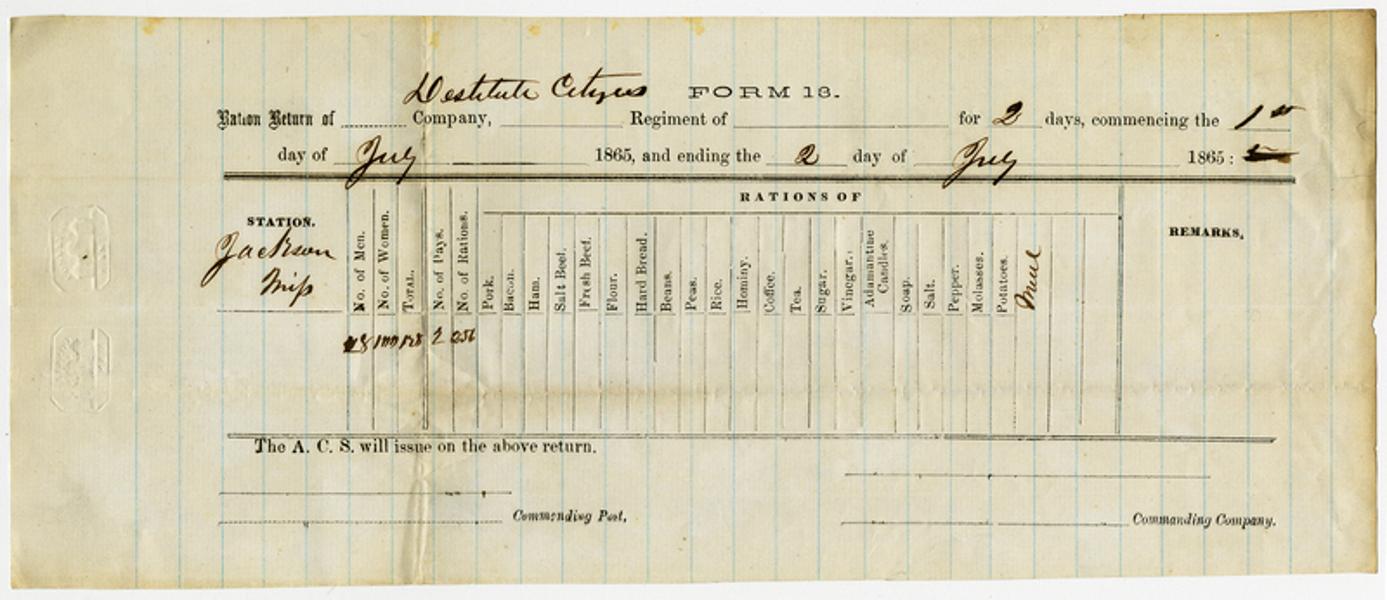 Destitute Citizens FORM 13.
Ration Return of Company, Regiment of for 2 days, commencing the 1st
day of July 1865, and ending the 2 day of July 1865:
RATIONS OF
STATION.
Jackson
Miss
No. of Men.
No. of Women.
TOTAL.
No. of Days.
No. of Rations.
Pork.
Bacon.
Ham.
Salt Beef.
Fresh Beef.
Flour.
Hard Bread.
Beans.
Peas.
Rice.
Hominy.
Coffee.
Tea.
Sugar.
Vinegar.
Adamantine
Candles.
Soap.
Salt.
Pepper.
Molases.
Potatoes.
Meal
REMARKS,
28 100 128 2 256
The A. C. S. will issue on the above return.
Commending Post,
Commanding Company.